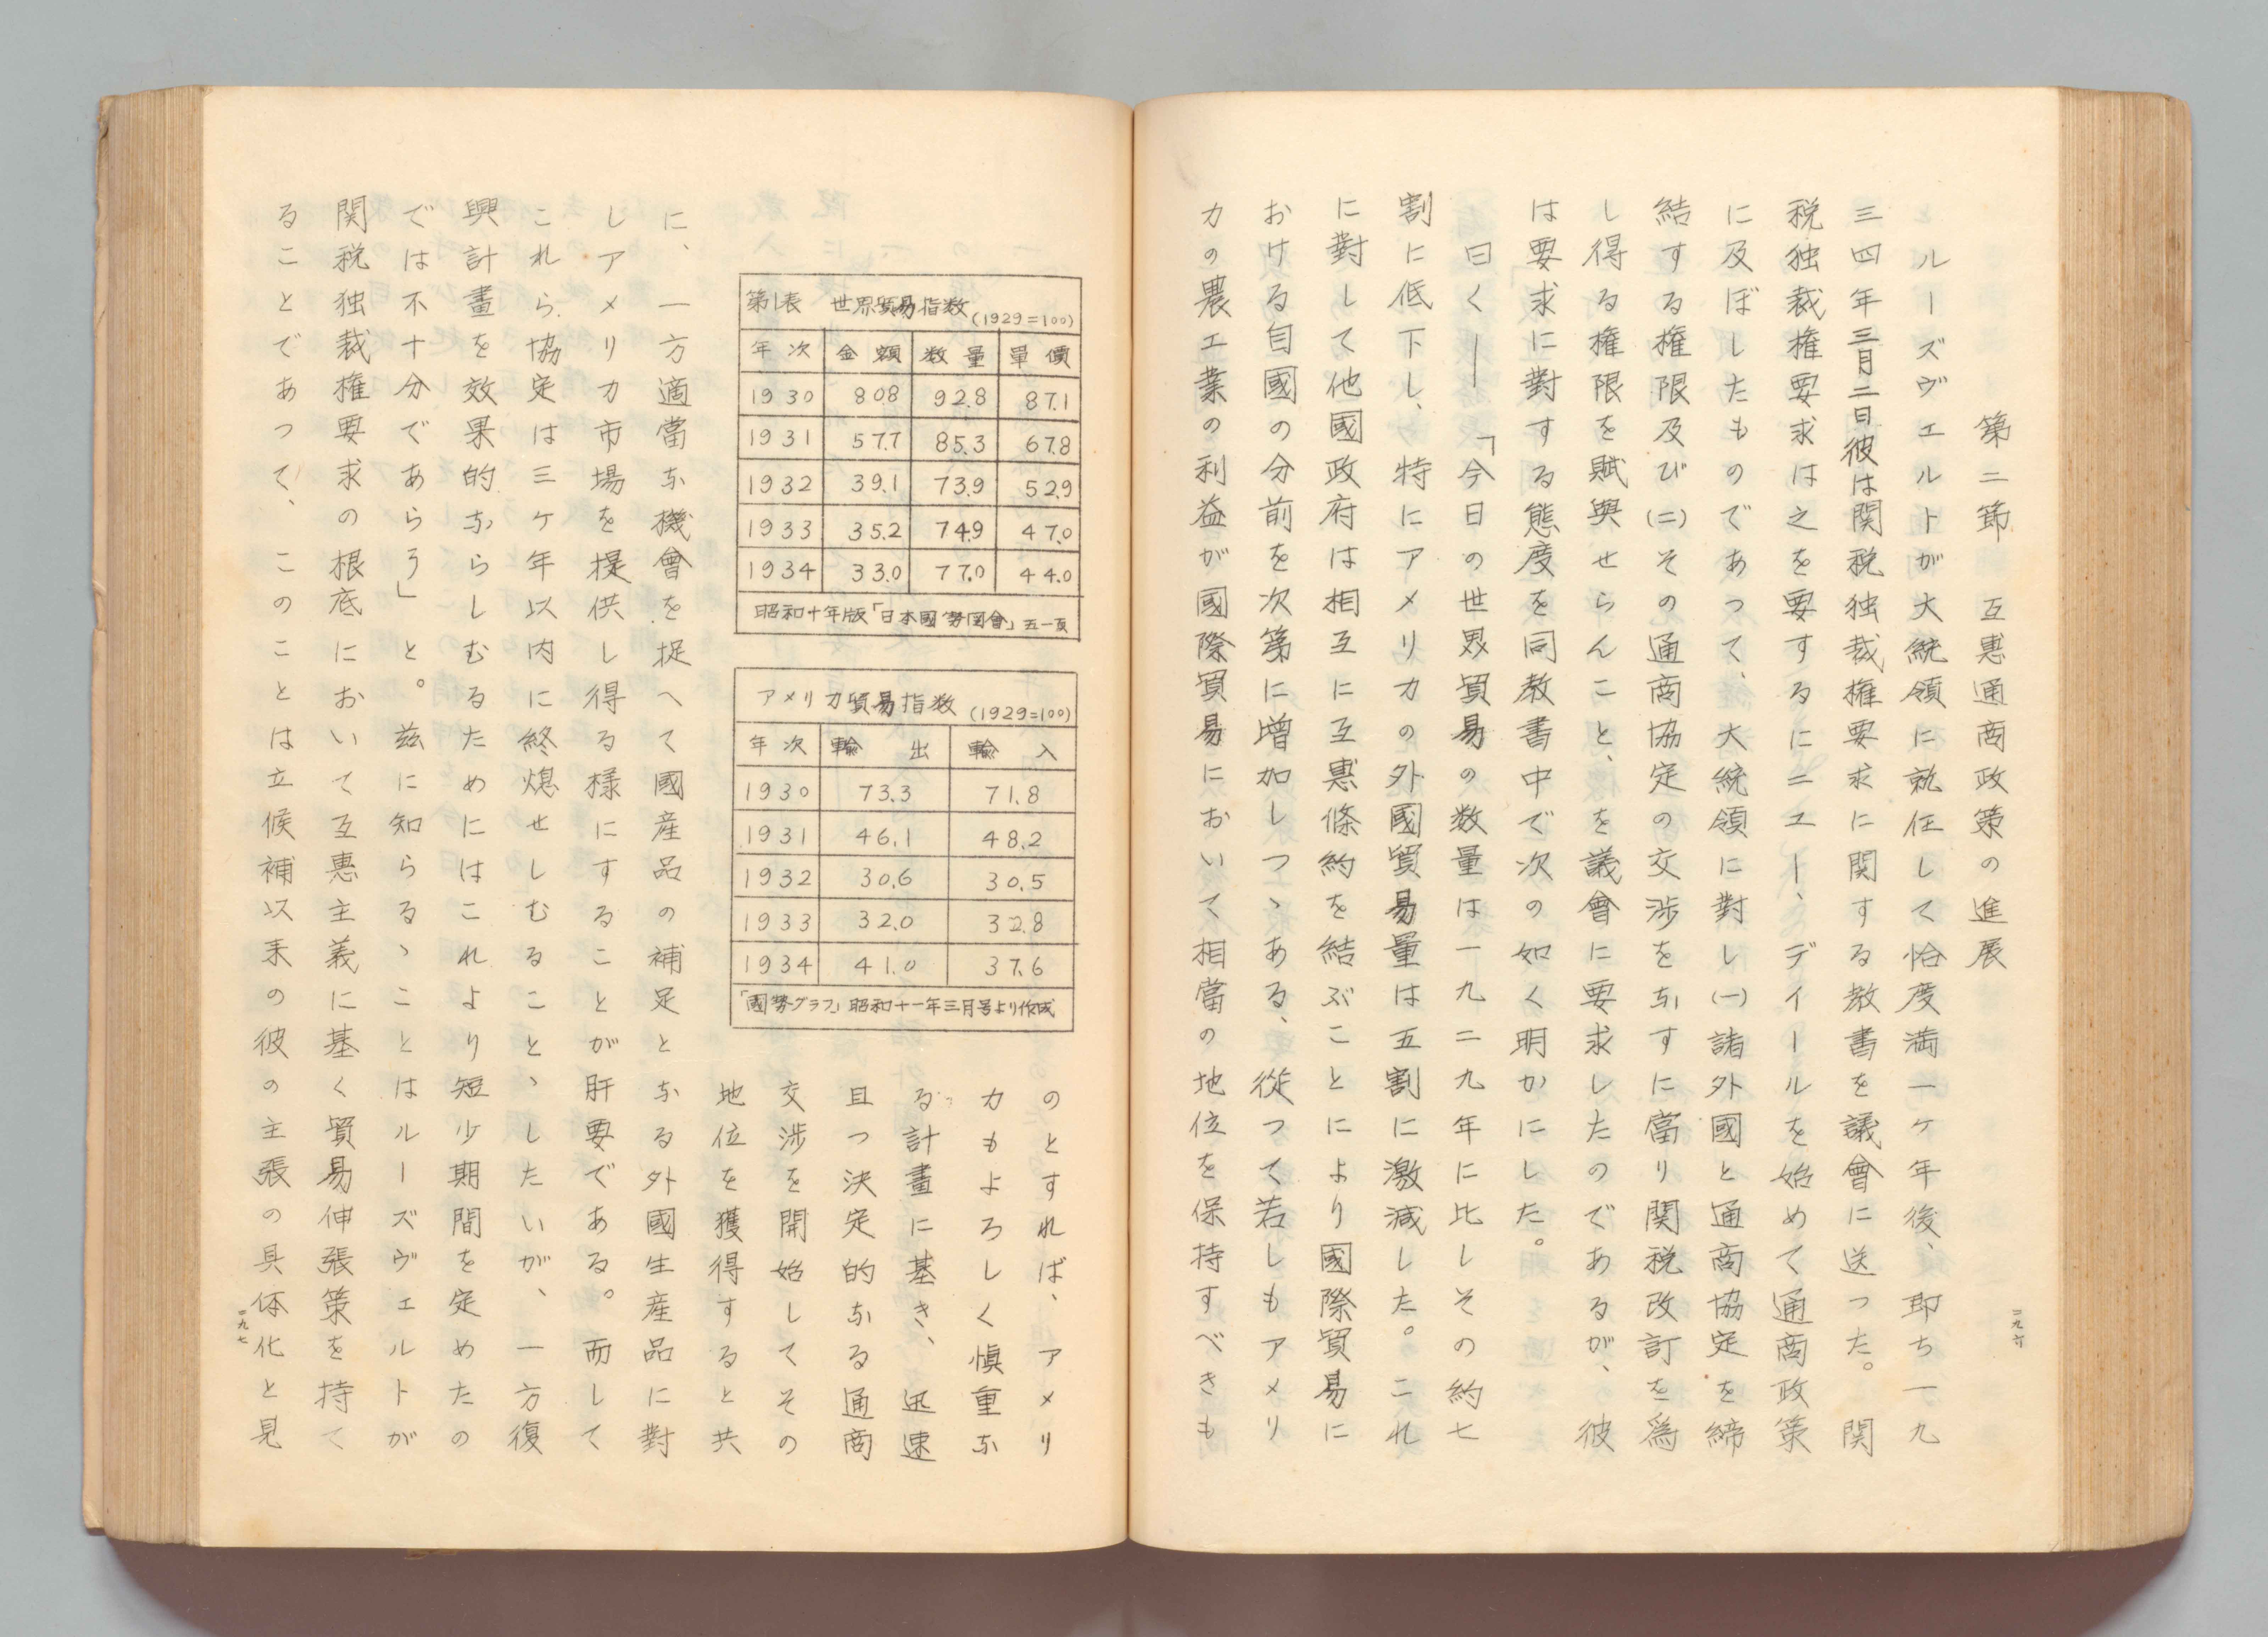 第二節　互惠通商政策の進展
ルーズヴェルトが大統領に就任して恰度満一ケ年後、即ち一九
三四年三月二日彼は関税独裁権要求に関する教書を議會に送つた。関
税独裁権要求は之を要するにニュー、デイールを始めて通商政策
に及ぼしたものであつて、大統領に對し(一)諸外國と通商協定を締
結する権限及び(二)その通商協定の交渉をなすに當り関税改訂を爲
し得る権限を賦與せられんこと、を議會に要求したのであるが、彼
は要求に對する態度を同教書中で次の如く明かにした。
曰く――「今日の世界貿易の数量は一九二九年に比しその約七
割に低下し、特にアメリカの外國貿易量は五割に激減した。これ
に對して他國政府は相互に互惠條約を結ぶことにより國際貿易に
おける自國の分前を次第に増加しつゝある、従つて若しもアメリ
カの農工業の利益が國際貿易において相當の地位を保持すべきも
二九六
のとすれば、アメリ
カもよろしく愼重な
る計畫に基き、迅速
且つ決定的なる通商
交渉を開始してその
地位を獲得すると共
第1表　世界貿易指数 (1929=100)
年次 金額 数量 單價
1930 80.8 92.8 87.1
1931 57.7 85.3 67.8
1932 39.1 73.9 52.9
1933 35.2 74.9 47.0
1934 33.0 77.0 44.0
昭和十年版「日本國勢圖會」五一頁
アメリカ貿易指数 (1929=100)
年次 輸出 輸入
1930 73.3 71.8
1931 46.1 48.2
1932 30.6 30.5
1933 32.0 32.8
1934 41.0 37.6
「國勢グラフ」昭和十一年三月号より作成
に、一方適當な機會を捉へて國産品の補足となる外國生産品に對
しアメリカ市場を提供し得る様にすることが肝要である。而して
これら協定は三ケ年以内に終熄せしむることゝしたいが、一方復
興計畫を效果的ならしむるためにはこれより短少期間を定めたの
では不十分であらう」と。茲に知らるゝことはルーズヴェルトが
関税独裁権要求の根底において互惠主義に基く貿易伸張策を持て
ることであつて、このことは立候補以来の彼の主張の具体化と見
二九七